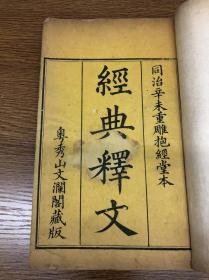 同治辛未重雕抱經堂本
經典釋文
粵秀山文瀾閣藏版